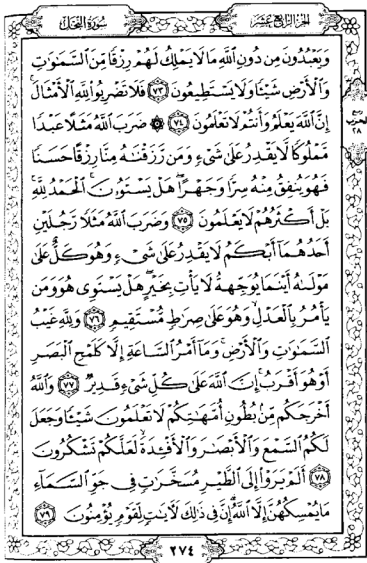 سُورَةُ النَّحْلِ
الجزء الرابع عشر
وَيَعْبُدُونَ مِن دُونِ ٱللَّهِ مَا لَا يَمْلِكُ لَهُمْ رِزْقًا مِّنَ ٱلسَّمَٰوَٰتِ
وَٱلْأَرْضِ شَيْـًٔا وَلَا يَسْتَطِيعُونَ ٧٣ فَلَا تَضْرِبُوا۟ لِلَّهِ ٱلْأَمْثَالَ ۚ
إِنَّ ٱللَّهَ يَعْلَمُ وَأَنتُمْ لَا تَعْلَمُونَ ٧٤ ۞ ضَرَبَ ٱللَّهُ مَثَلًا عَبْدًا
ربع الحزب ٢٨
مَّمْلُوكًا لَّا يَقْدِرُ عَلَىٰ شَىْءٍ وَمَن رَّزَقْنَٰهُ مِنَّا رِزْقًا حَسَنًا
فَهُوَ يُنفِقُ مِنْهُ سِرًّا وَجَهْرًا ۖ هَلْ يَسْتَوُۥنَ ۚ ٱلْحَمْدُ لِلَّهِ ۚ
بَلْ أَكْثَرُهُمْ لَا يَعْلَمُونَ ٧٥ وَضَرَبَ ٱللَّهُ مَثَلًا رَّجُلَيْنِ
أَحَدُهُمَآ أَبْكَمُ لَا يَقْدِرُ عَلَىٰ شَىْءٍ وَهُوَ كَلٌّ عَلَىٰ
مَوْلَىٰهُ أَيْنَمَا يُوَجِّههُّ لَا يَأْتِ بِخَيْرٍ ۖ هَلْ يَسْتَوِى هُوَ وَمَن
يَأْمُرُ بِٱلْعَدْلِ ۙ وَهُوَ عَلَىٰ صِرَٰطٍ مُّسْتَقِيمٍ ٧٦ وَلِلَّهِ غَيْبُ
ٱلسَّمَٰوَٰتِ وَٱلْأَرْضِ ۚ وَمَآ أَمْرُ ٱلسَّاعَةِ إِلَّا كَلَمْحِ ٱلْبَصَرِ
أَوْ هُوَ أَقْرَبُ ۚ إِنَّ ٱللَّهَ عَلَىٰ كُلِّ شَىْءٍ قَدِيرٌ ٧٧ وَٱللَّهُ
أَخْرَجَكُم مِّنۢ بُطُونِ أُمَّهَٰتِكُمْ لَا تَعْلَمُونَ شَيْـًٔا وَجَعَلَ
لَكُمُ ٱلسَّمْعَ وَٱلْأَبْصَٰرَ وَٱلْأَفْـِٔدَةَ ۙ لَعَلَّكُمْ تَشْكُرُونَ
٧٨ أَلَمْ يَرَوْا۟ إِلَى ٱلطَّيْرِ مُسَخَّرَٰتٍ فِى جَوِّ ٱلسَّمَآءِ
مَا يُمْسِكُهُنَّ إِلَّا ٱللَّهُ ۗ إِنَّ فِى ذَٰلِكَ لَءَايَٰتٍ لِّقَوْمٍ يُؤْمِنُونَ ٧٩
٢٧٤